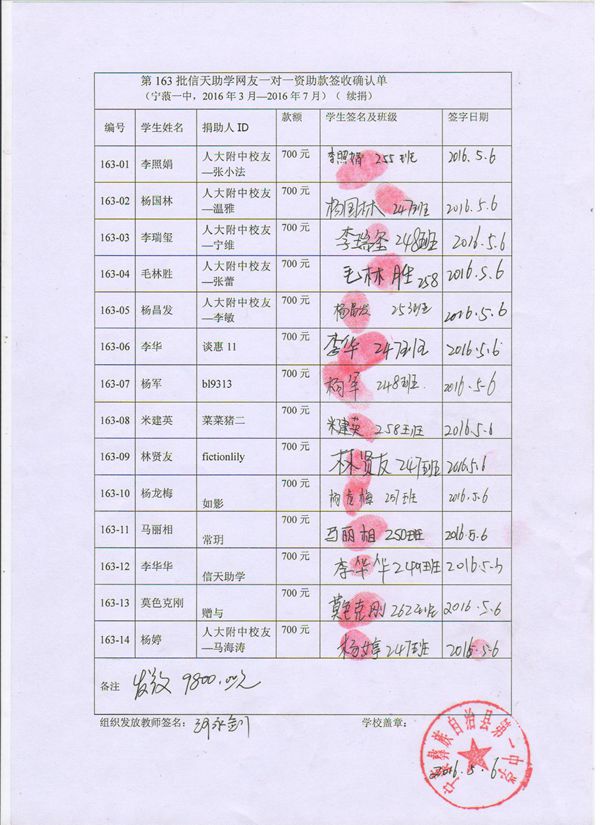 第 163 批信天助学网友一对一资助款签收确认单
（宁蒗一中，2016 年 3 月—2016 年 7 月）（ 续捐）
编号 学生姓名 捐助人 ID 款额 学生签名及班级 签字日期
163-01 李照娟 人大附中校友 700 元 李照娟 255班 2016.5.6
—张小法
163-02 杨国林 人大附中校友 700 元 杨国林 247班 2016.5.6
—温雅
163-03 李瑞玺 人大附中校友 700 元 李瑞玺 248班 2016.5.6
—宁维
163-04 毛林胜 人大附中校友 700 元 毛林胜 258 2016.5.6
—张蕾
163-05 杨昌发 人大附中校友 700 元 杨昌发 253班 2016.5.6
—李敏
163-06 李华 谈惠 11 700 元 李华 247班 2016.5.6
163-07 杨军 bl9313 700 元 杨军 248班 2016.5-6
163-08 米建英 菜菜猪二 700 元 米建英 258班 2016.5.6
163-09 林贤友 fictionlily 700 元 林贤友 247班 2016.5.6
163-10 杨龙梅 如影 700 元 杨龙梅 257班 2016.5.6
163-11 马丽相 常玥 700 元 马丽相 250班 2016.5.6
163-12 李华华 信天助学 700 元 李华华 249班
163-13 莫色克刚 赠与 700 元 莫色克刚 262班 2016.5.6
163-14 杨婷 人大附中校友 700 元 杨婷 247班 2016.5.6
—马海涛
备注 发放 9800.00元
组织发放教师签名： 学校盖章：
彝族自治县第一中学
2016.5.6